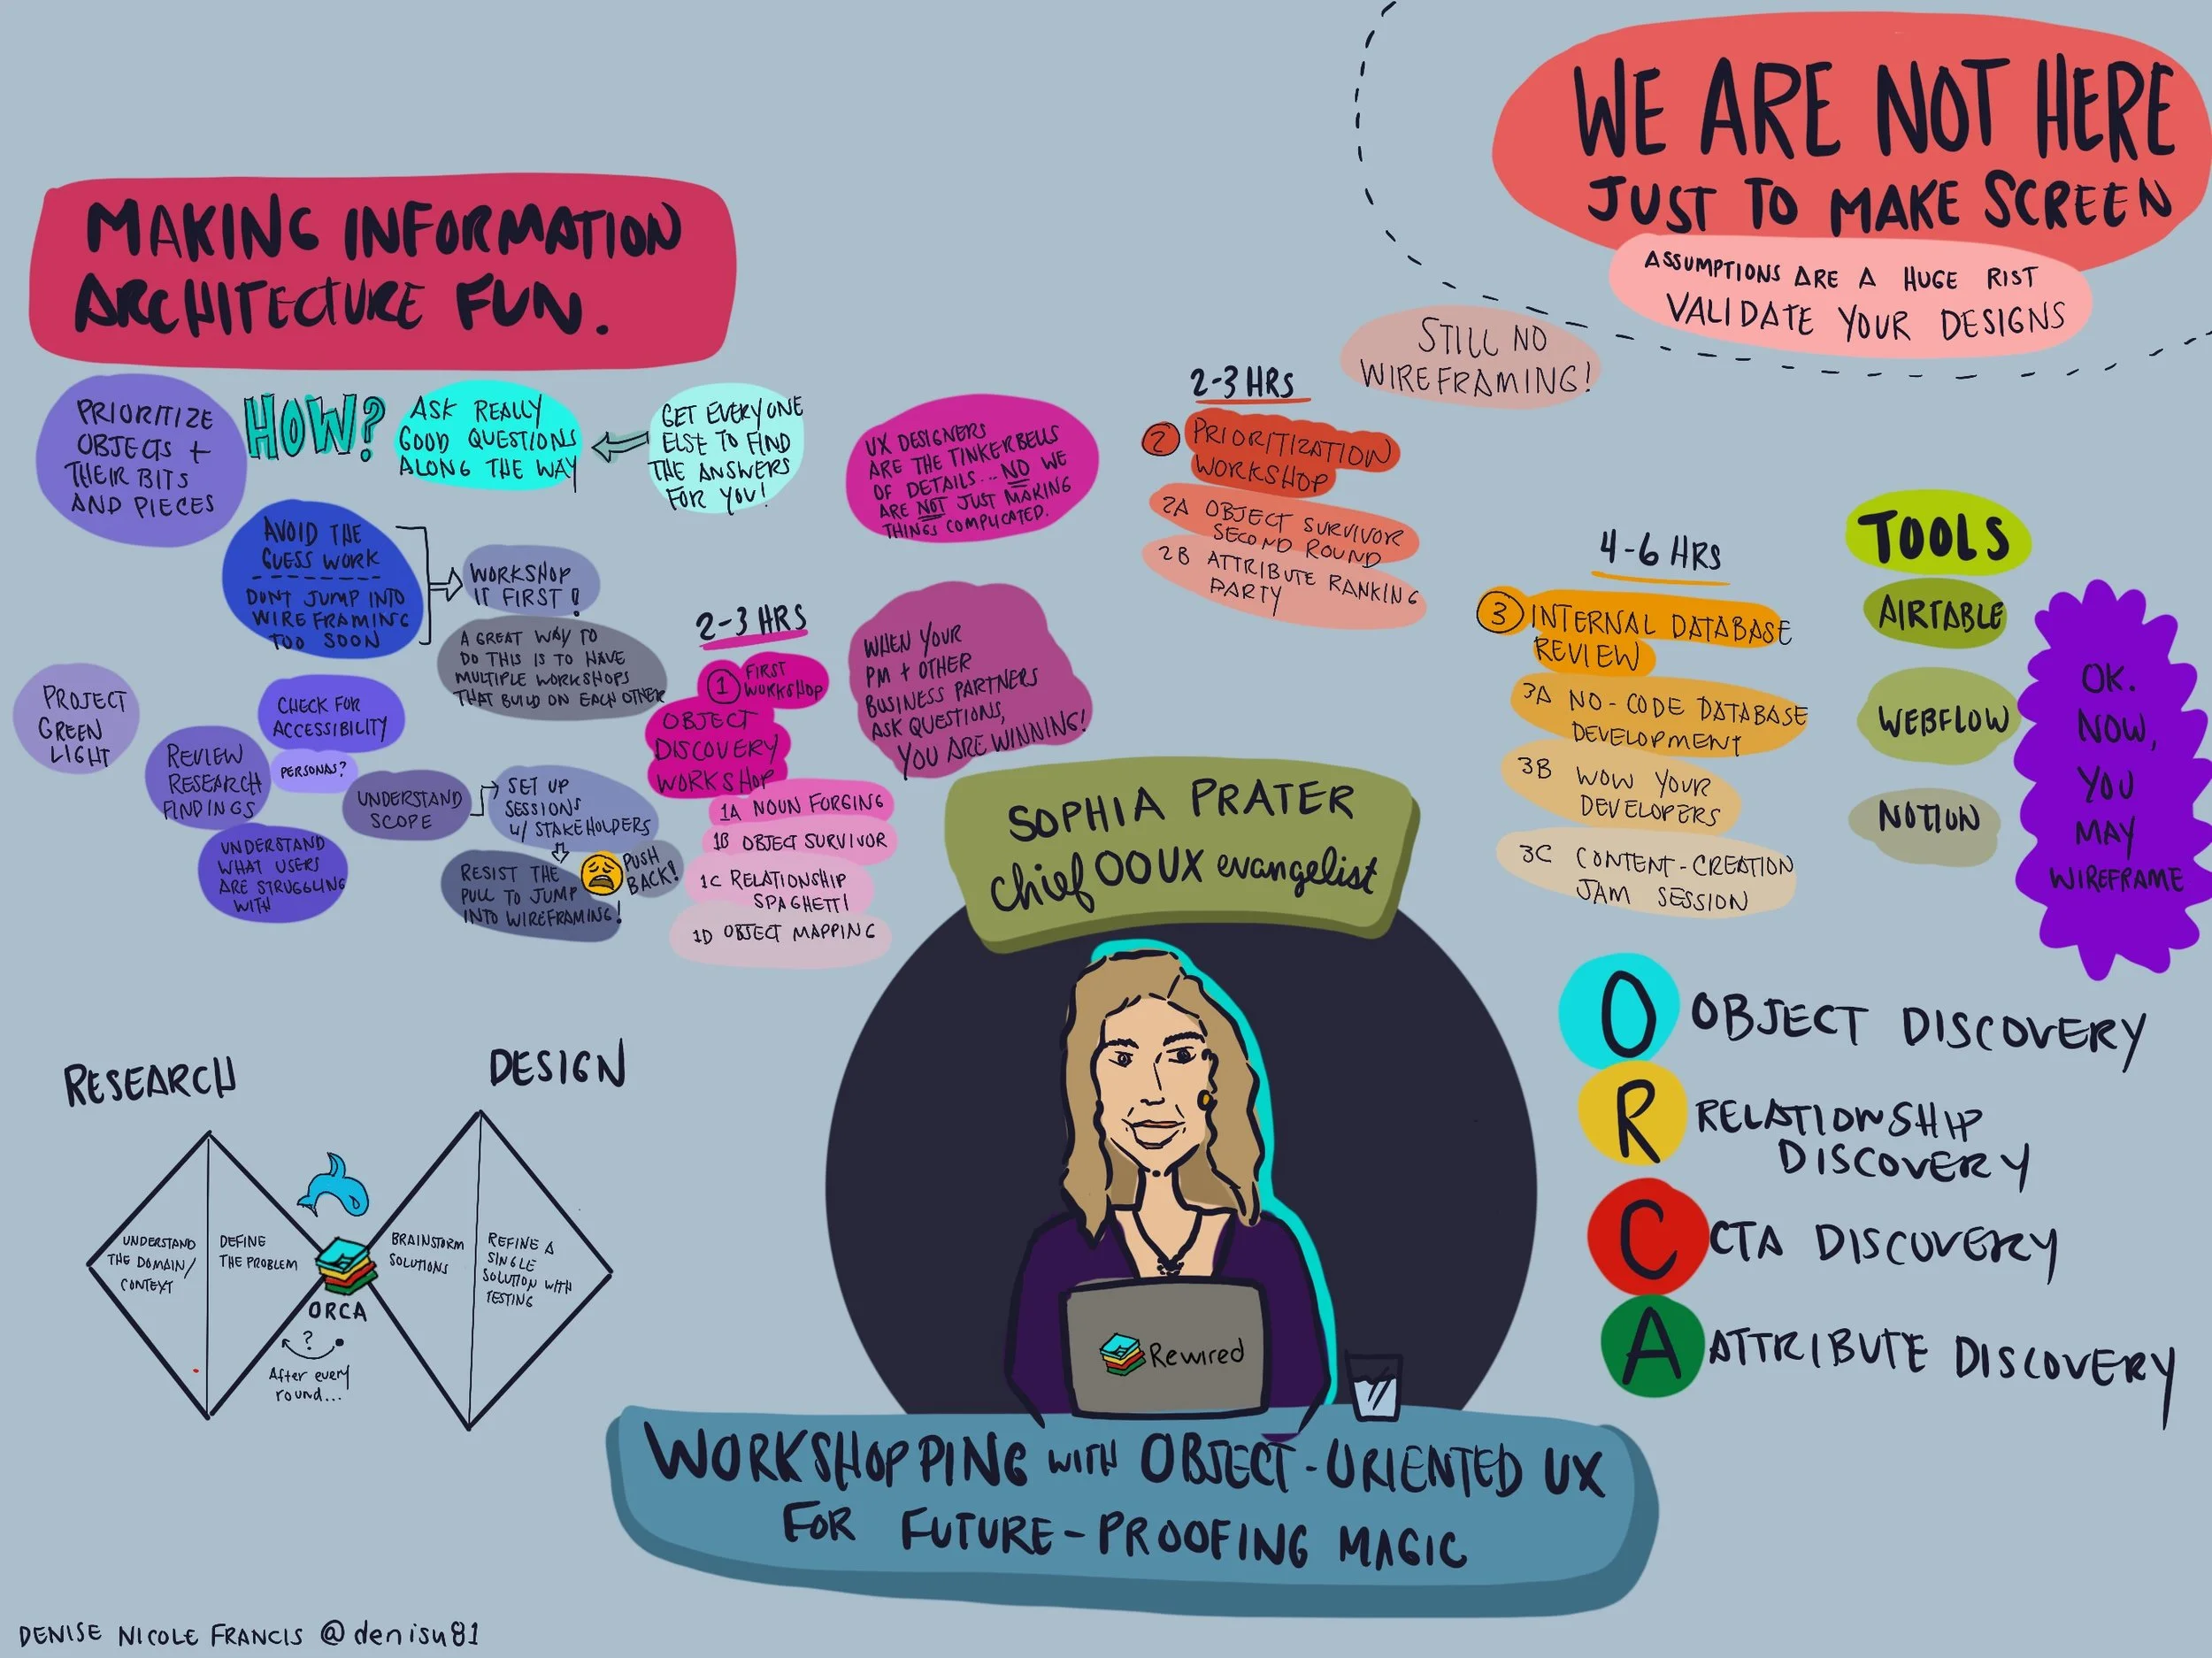 WE ARE NOT HERE
JUST TO MAKE SCREEN
ASSUMPTIONS ARE A HUGE RIST
VALIDATE YOUR DESIGNS
MAKING INFORMATION
ARCHITECTURE FUN.
PRIORITIZE
OBJECTS +
THEIR BITS
AND PIECES
HOW?
ASK REALLY
GOOD QUESTIONS
ALONG THE WAY
GET EVERYONE
ELSE TO FIND
THE ANSWERS
FOR YOU!
AVOID THE
GUESS WORK
DONT JUMP INTO
WIREFRAMING
TOO SOON
WORKSHOP
IT FIRST!
A GREAT WAY TO
DO THIS IS TO HAVE
MULTIPLE WORKSHOPS
THAT BUILD ON EACH OTHER
PROJECT
GREEN
LIGHT
REVIEW
RESEARCH
FINDINGS
CHECK FOR
ACCESSIBILITY
PERSONAS?
UNDERSTAND
WHAT USERS
ARE STRUGGLING
WITH
UNDERSTAND
SCOPE
SET UP
SESSIONS
W/ STAKEHOLDERS
RESIST THE
PULL TO JUMP
INTO WIREFRAMING!
PUSH
BACK!
2-3 HRS
1 FIRST
WORKSHOP
OBJECT
DISCOVERY
WORKSHOP
1A NOUN FORGING
1B OBJECT SURVIVOR
1C RELATIONSHIP
SPAGHETTI
1D OBJECT MAPPING
UX DESIGNERS
ARE THE TINKERBELLS
OF DETAILS... NO WE
ARE NOT JUST MAKING
THINGS COMPLICATED.
WHEN YOUR
PM + OTHER
BUSINESS PARTNERS
ASK QUESTIONS,
YOU ARE WINNING!
2-3 HRS
2 PRIORITIZATION
WORKSHOP
2A OBJECT SURVIVOR
SECOND ROUND
2B ATTRIBUTE RANKING
PARTY
STILL NO
WIREFRAMING!
4-6 HRS
3 INTERNAL DATABASE
REVIEW
3A NO-CODE DATABASE
DEVELOPMENT
3B WOW YOUR
DEVELOPERS
3C CONTENT-CREATION
JAM SESSION
TOOLS
AIRTABLE
WEBFLOW
NOTION
OK.
NOW,
YOU
MAY
WIREFRAME
SOPHIA PRATER
chief OOUX evangelist
RESEARCH
DESIGN
UNDERSTAND
THE DOMAIN/
CONTEXT
DEFINE
THE PROBLEM
BRAINSTORM
SOLUTIONS
REFINE A
SINGLE
SOLUTION WITH
TESTING
ORCA
?
After every
round...
O OBJECT DISCOVERY
R RELATIONSHIP
DISCOVERY
C CTA DISCOVERY
A ATTRIBUTE DISCOVERY
Rewired
WORKSHOPPING WITH OBJECT-ORIENTED UX
FOR FUTURE-PROOFING MAGIC
DENISE NICOLE FRANCIS @denisu81